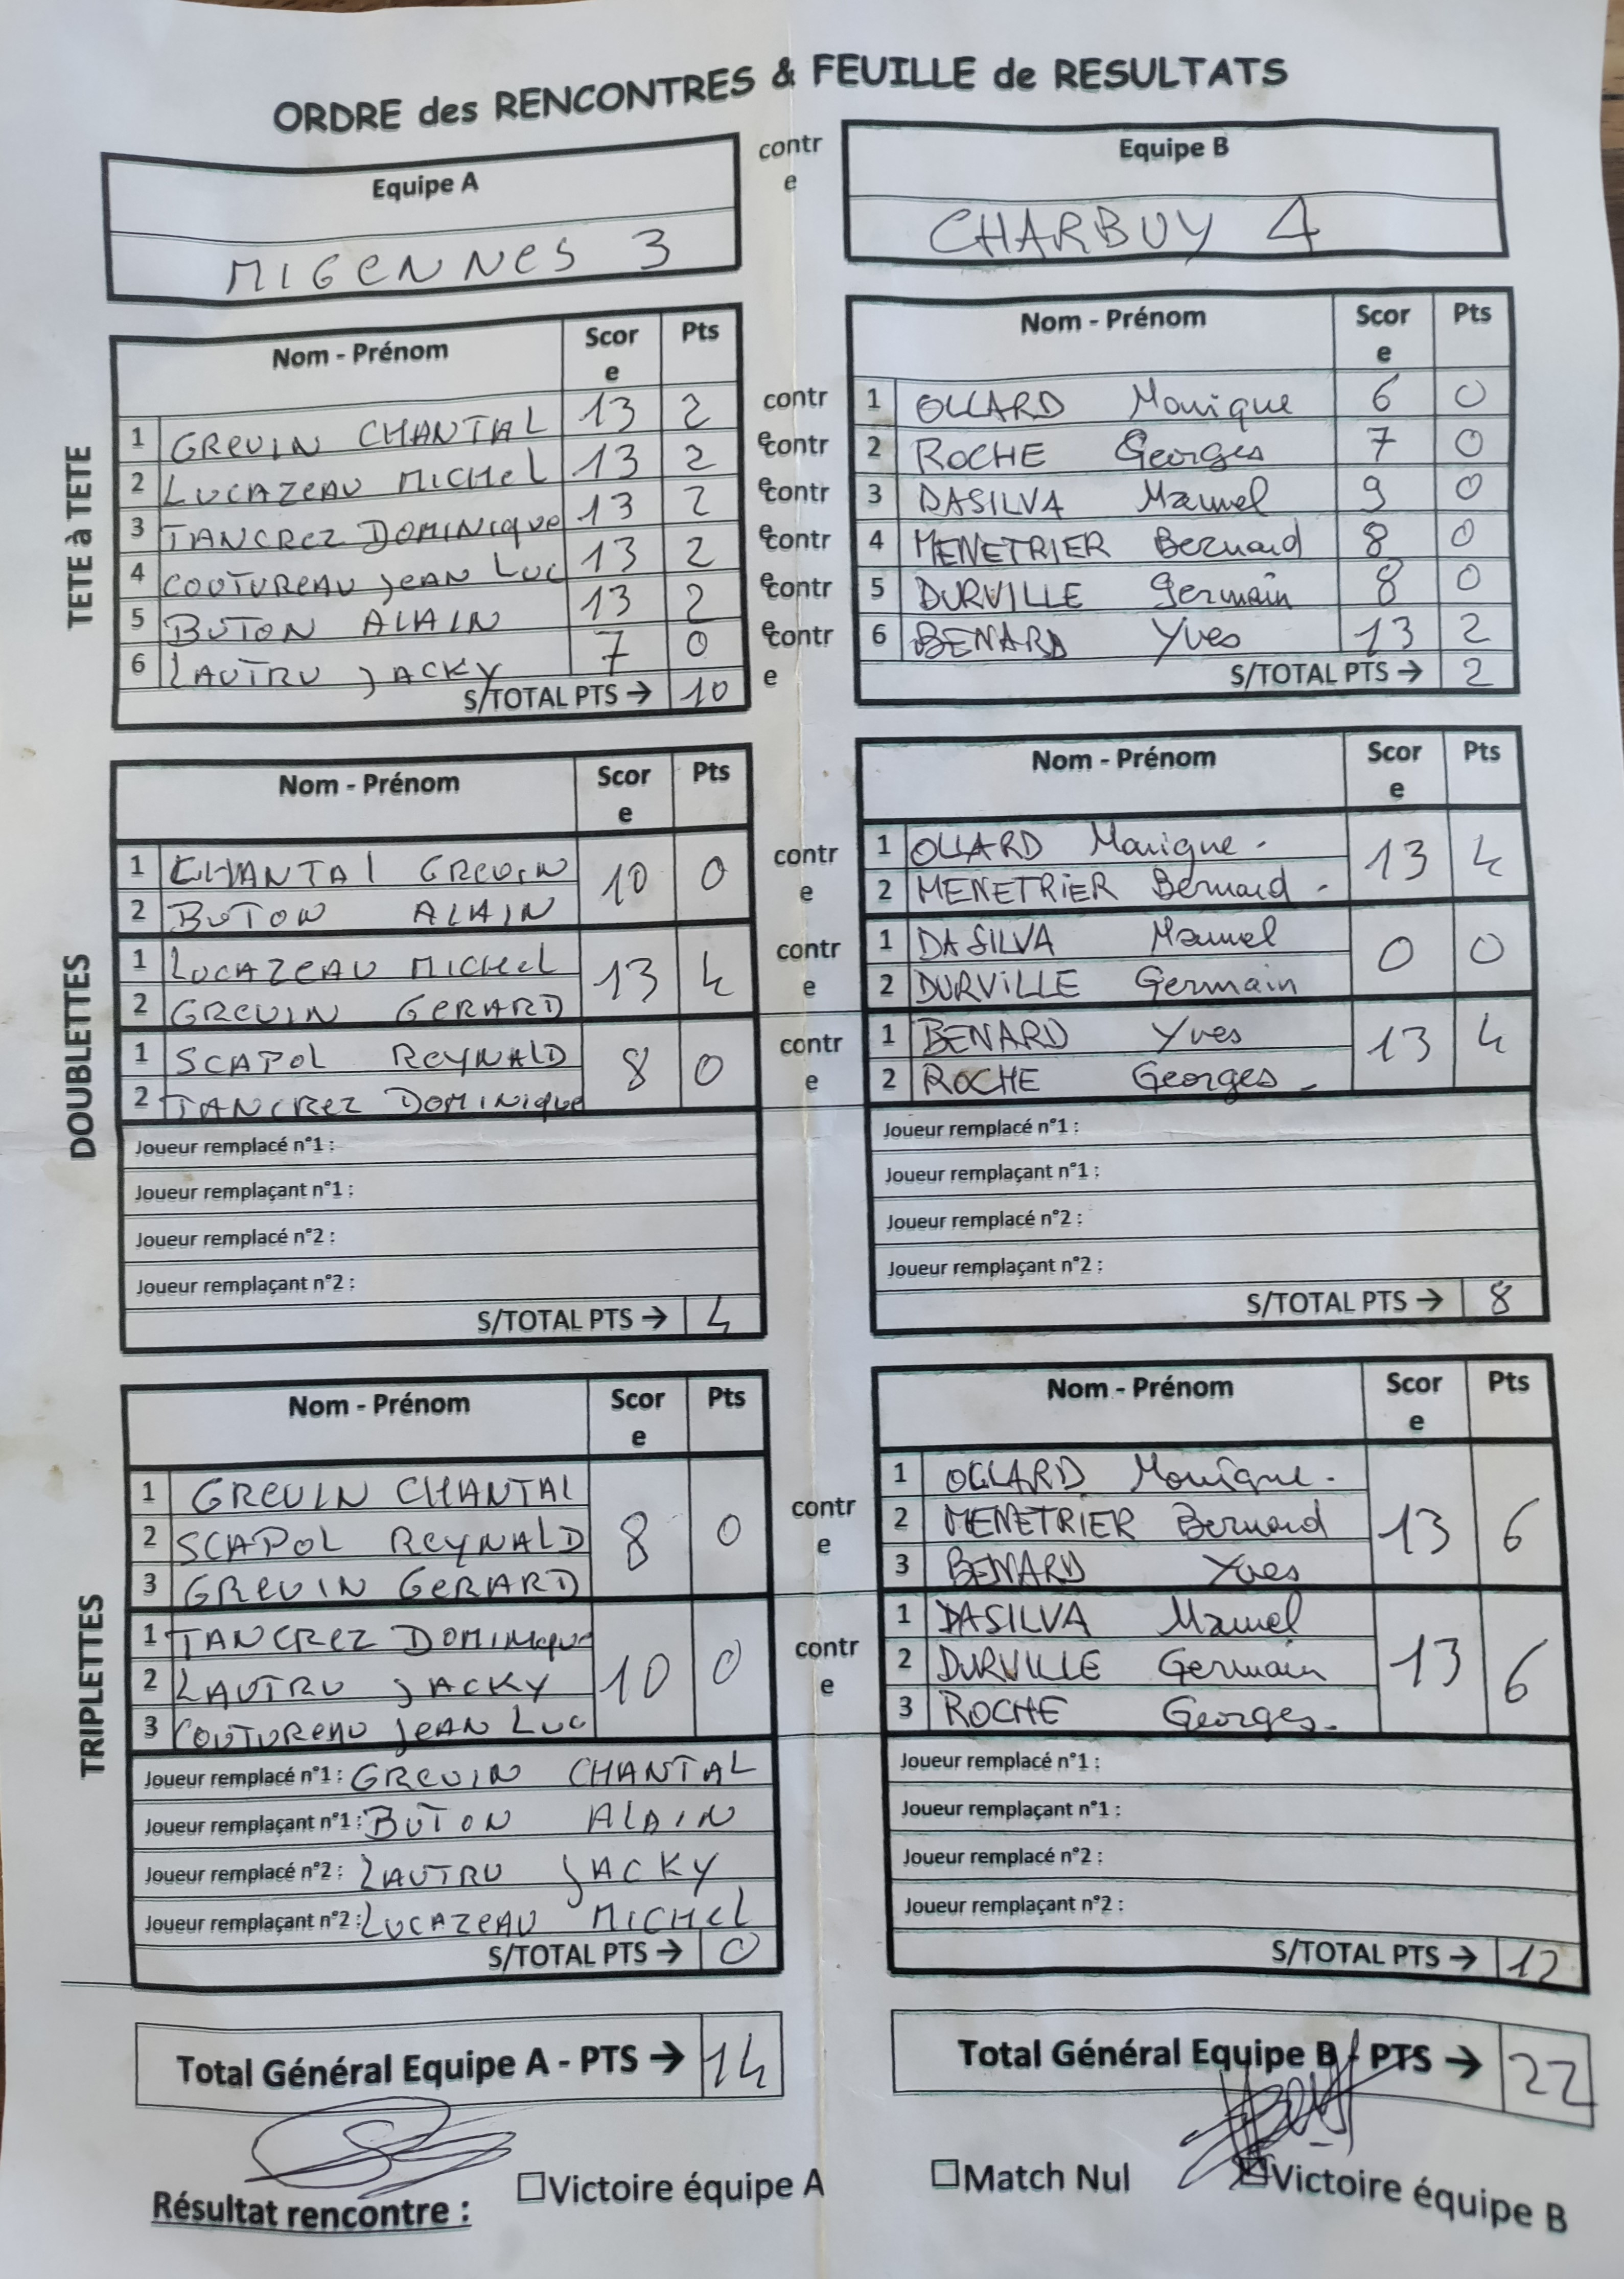 ORDRE des RENCONTRES & FEUILLE de RESULTATS
Equipe A
MIGENNES 3
contr
e
Equipe B
CHARBUY 4
TETE à TETE
Nom - Prénom Scor e Pts
1 GREVIN CHANTAL 13 2
2 LUCAZEAU MICHEL 13 2
3 TANCREZ DOMINIQUE 13 2
4 COUTUREAU JEAN LUC 13 2
5 BUTON ALAIN 13 2
6 LAUTRU JACKY 7 0
S/TOTAL PTS → 10
contr
e
contr
e
contr
e
contr
e
contr
e
contr
e
Nom - Prénom Scor e Pts
1 OLLARD Monique 6 0
2 ROCHE Georges 7 0
3 DASILVA Manuel 9 0
4 MENETRIER Bernard 8 0
5 DURVILLE Germain 8 0
6 BENARD Yves 13 2
S/TOTAL PTS → 2
DOUBLETTES
Nom - Prénom Scor e Pts
1 CHANTAL GREVIN 10 0
2 BUTON ALAIN
1 LUCAZEAU MICHEL 13 4
2 GREVIN GERARD
1 SCAPOL REYNALD 8 0
2 TANCREZ DOMINIQUE
Joueur remplacé n°1 :
Joueur remplaçant n°1 :
Joueur remplacé n°2 :
Joueur remplaçant n°2 :
S/TOTAL PTS → 4
contr
e
contr
e
contr
e
Nom - Prénom Scor e Pts
1 OLLARD Monique - 13 4
2 MENETRIER Bernard -
1 DASILVA Manuel 0 0
2 DURVILLE Germain
1 BENARD Yves 13 4
2 ROCHE Georges -
Joueur remplacé n°1 :
Joueur remplaçant n°1 :
Joueur remplacé n°2 :
Joueur remplaçant n°2 :
S/TOTAL PTS → 8
TRIPLETTES
Nom - Prénom Scor e Pts
1 GREVIN CHANTAL
2 SCAPOL REYNALD 8 0
3 GREVIN GERARD
1 TANCREZ DOMINIQUE
2 LAUTRU JACKY 10 0
3 COUTUREAU JEAN LUC
Joueur remplacé n°1 : GREVIN CHANTAL
Joueur remplaçant n°1 : BUTON ALAIN
Joueur remplacé n°2 : LAUTRU JACKY
Joueur remplaçant n°2 : LUCAZEAU MICHEL
S/TOTAL PTS → 0
contr
e
contr
e
Nom - Prénom Scor e Pts
1 OLLARD Monique -
2 MENETRIER Bernard 13 6
3 BENARD Yves
1 DASILVA Manuel
2 DURVILLE Germain 13 6
3 ROCHE Georges -
Joueur remplacé n°1 :
Joueur remplaçant n°1 :
Joueur remplacé n°2 :
Joueur remplaçant n°2 :
S/TOTAL PTS → 12
Total Général Equipe A - PTS → 14
Total Général Equipe B - PTS → 22
Résultat rencontre : ☐Victoire équipe A ☐Match Nul ☒Victoire équipe B